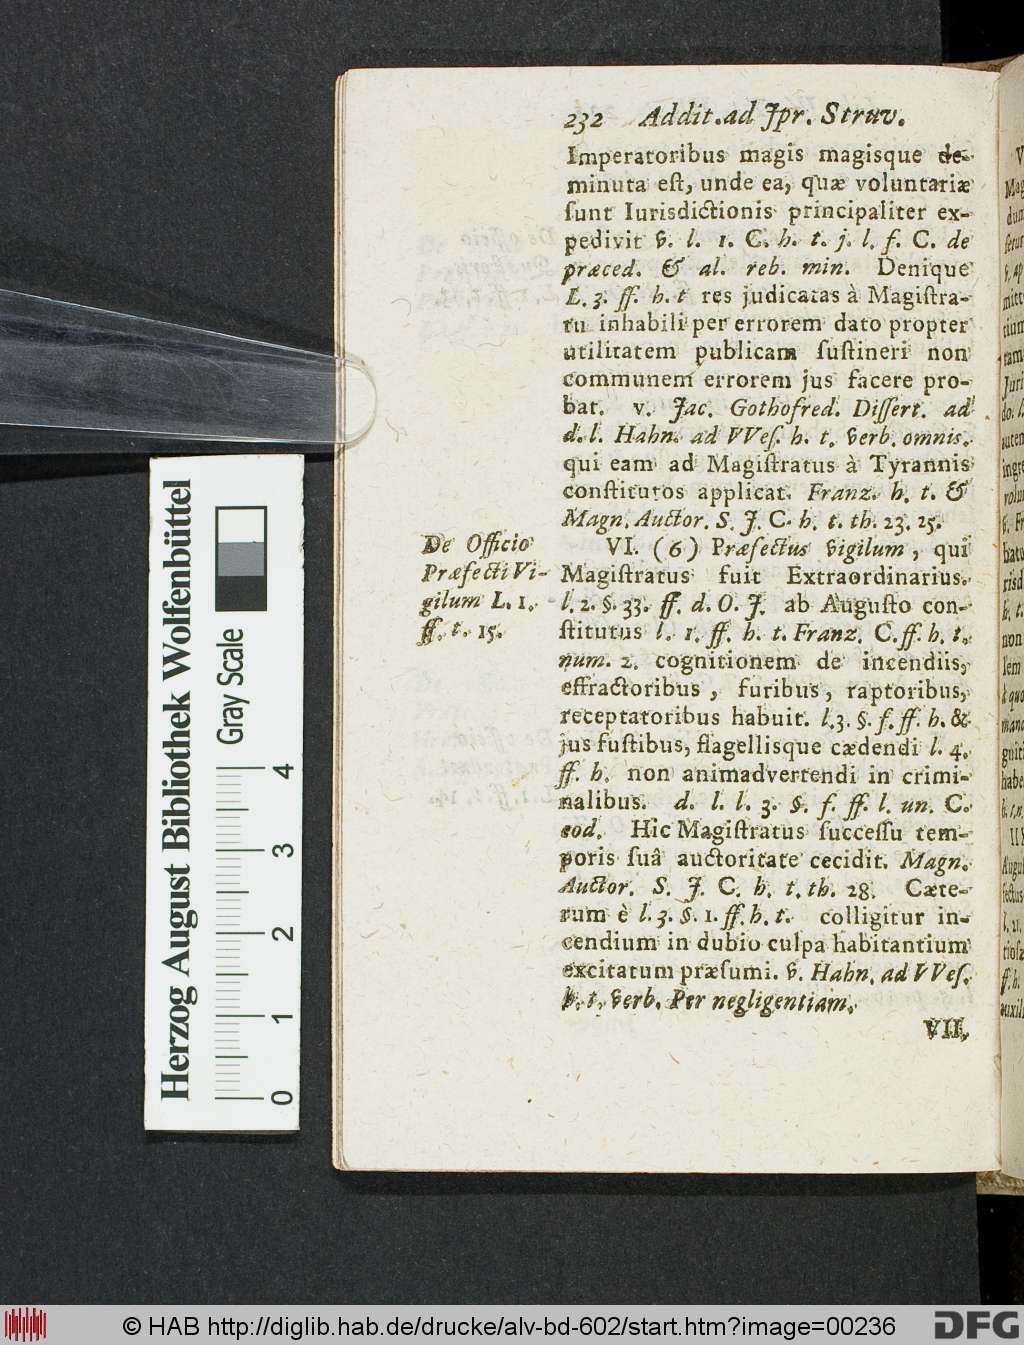 232 Addit. ad Jpr. Struv.
Imperatoribus magis magisque de-
minuta eſt, unde ea, quæ voluntariæ
ſunt Iurisdictionis principaliter ex-
pedivit v. l. 1. C. h. t. j. l. f. C. de
præced. & al. reb. min. Denique
L. 3. ff. h. t res judicatas à Magiſtra-
tu inhabili per errorem dato propter
utilitatem publicam ſuſtineri non
communem errorem jus facere pro-
bat. v. Jac. Gothofred. Diſſert. ad
d. l. Hahn. ad VVeſ. h. t. verb. omnis.
qui eam ad Magiſtratus à Tyrannis
conſtitutos applicat. Franz. h. t. &
Magn. Auctor. S. J. C. h. t. th. 23. 25.
De Officio
Præfecti Vi-
gilum L. 1.
ff. t. 15.
VI. (6) Præfectus vigilum, qui
Magiſtratus fuit Extraordinarius.
l. 2. §. 33. ff. d. O. J. ab Auguſto con-
ſtitutus l. 1. ff. h. t. Franz. C. ff. h. t.
num. 2. cognitionem de incendiis,
effractoribus, furibus, raptoribus,
receptatoribus habuit. l. 3. §. f. ff. h. &
jus fuſtibus, flagellisque cædendi l. 4.
ff. h. non animadvertendi in crimi-
nalibus. d. l. l. 3. §. f. ff. l. un. C.
eod. Hic Magiſtratus ſucceſſu tem-
poris ſuâ auctoritate cecidit. Magn.
Auctor. S. J. C. h. t. th. 28. Cæte-
rum è l. 3. §. 1. ff. h. t. colligitur in-
cendium in dubio culpa habitantium
excitatum præſumi. v. Hahn. ad VVeſ.
h. t. verb. Per negligentiam.
VII.
Herzog August Bibliothek Wolfenbüttel
Gray Scale
0 1 2 3 4
© HAB http://diglib.hab.de/drucke/alv-bd-602/start.htm?image=00236
DFG